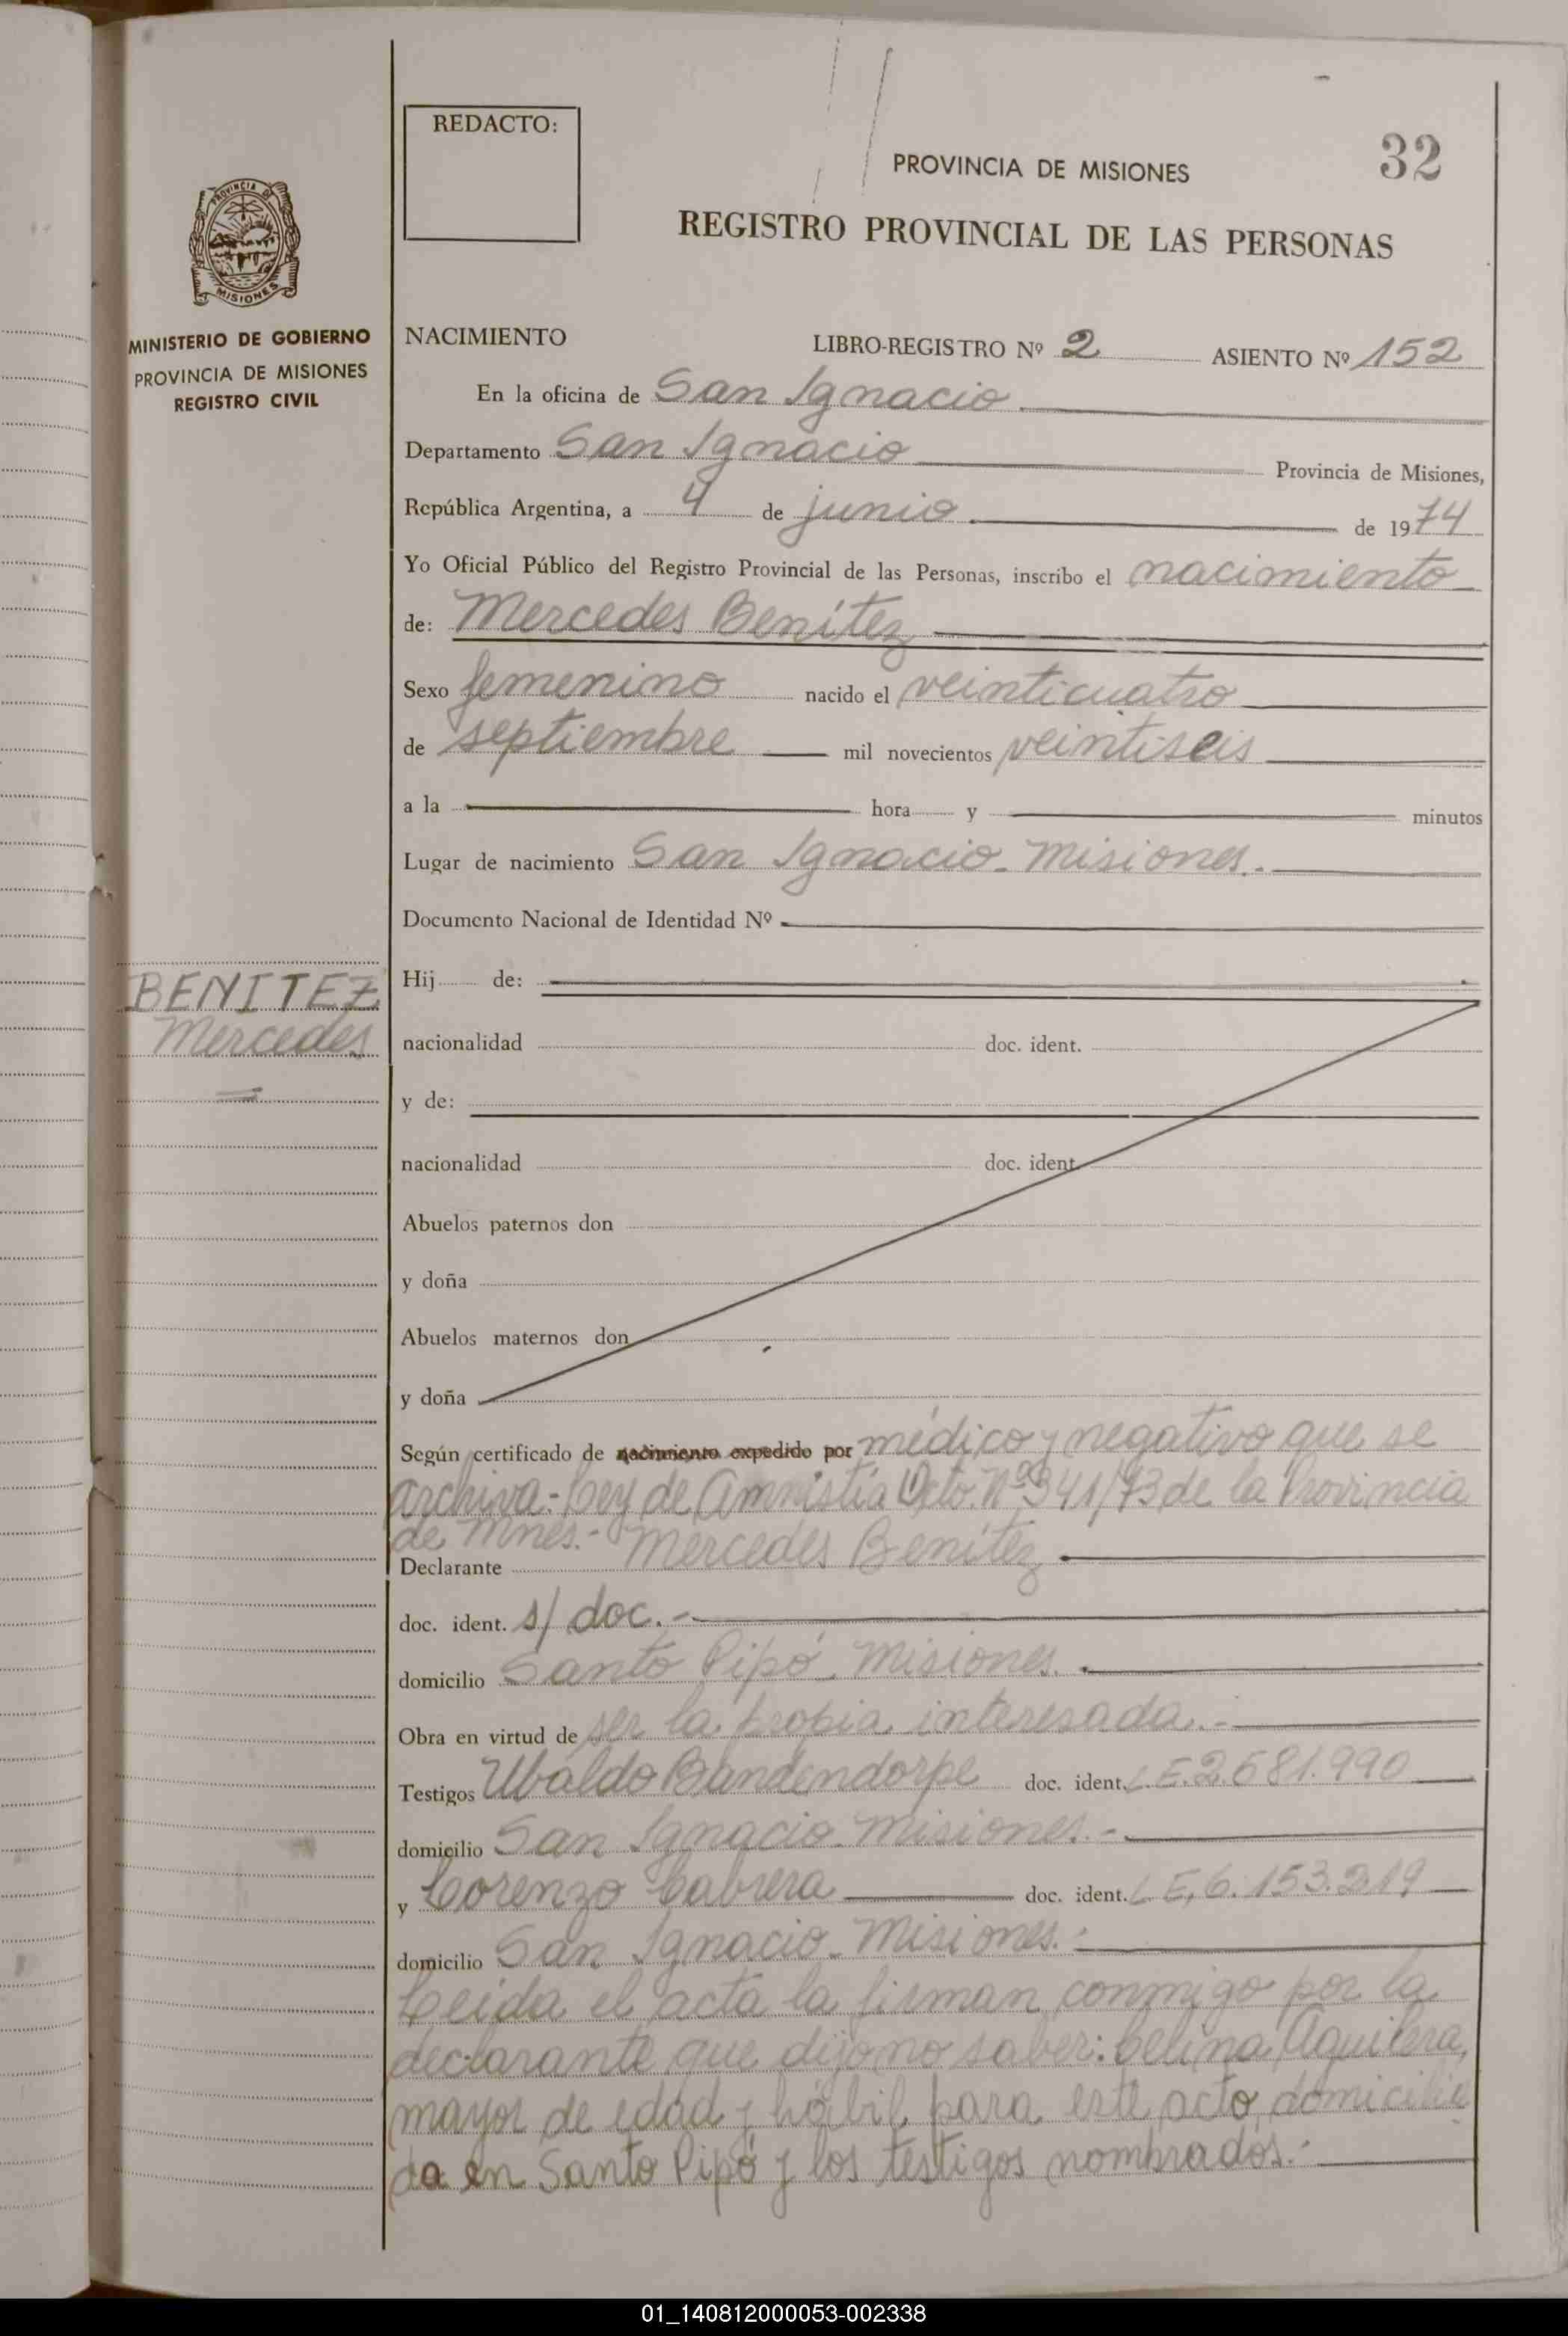 REDACTO:
32
PROVINCIA DE MISIONES
REGISTRO PROVINCIAL DE LAS PERSONAS
PROVINCIA DE
MISIONES
MINISTERIO DE GOBIERNO
PROVINCIA DE MISIONES
REGISTRO CIVIL
NACIMIENTO LIBRO-REGISTRO Nº 2 ASIENTO Nº 152
En la oficina de San Ignacio
Departamento San Ignacio Provincia de Misiones,
República Argentina, a 4 de junio de 1974
Yo Oficial Público del Registro Provincial de las Personas, inscribo el nacimiento
de: Mercedes Benítez
Sexo femenino nacido el veinticuatro
de septiembre mil novecientos veintiseis
a la hora y minutos
Lugar de nacimiento San Ignacio - Misiones.-
Documento Nacional de Identidad Nº
BENITEZ
Mercedes
Hij de:
nacionalidad doc. ident.
y de:
nacionalidad doc. ident.
Abuelos paternos don
y doña
Abuelos maternos don
y doña
Según certificado de nacimiento expedido por médico y negativo que se
archiva.- Ley de Amnistía Dcto. Nº 341/73 de la Provincia
de Mnes.-
Declarante Mercedes Benítez
doc. ident. s/ doc.-
domicilio Santo Pipó. Misiones.
Obra en virtud de ser la propia interesada.-
Testigos Ubaldo Bandendorpe doc. ident. L.E. 2.581.990
domicilio San Ignacio. Misiones.-
y Lorenzo Cabrera doc. ident. L.E. 6.153.219
domicilio San Ignacio - Misiones.-
Leída el acta la firman conmigo por la
declarante que dijo no saber: Celina Aguilera,
mayor de edad y hábil para este acto, domicilia
da en Santo Pipó y los testigos nombrados.-
01_140812000053-002338